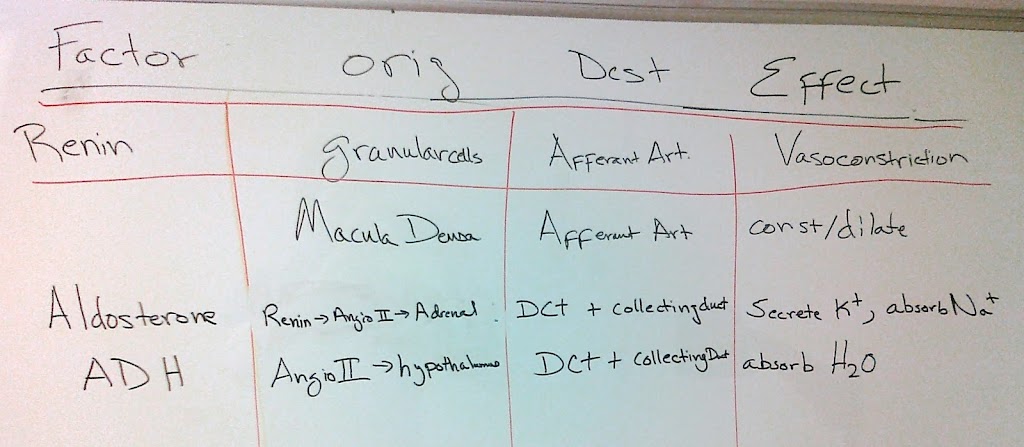 Factor orig Dest Effect
Renin granular cells Afferent Art. Vasoconstriction
Macula Densa Afferent Art const/dilate
Aldosterone Renin→Angio II→Adrenal DCt + collecting duct Secrete K⁺, absorb Na⁺
ADH Angio II→hypothalamus DCt + collecting Duct absorb H₂O